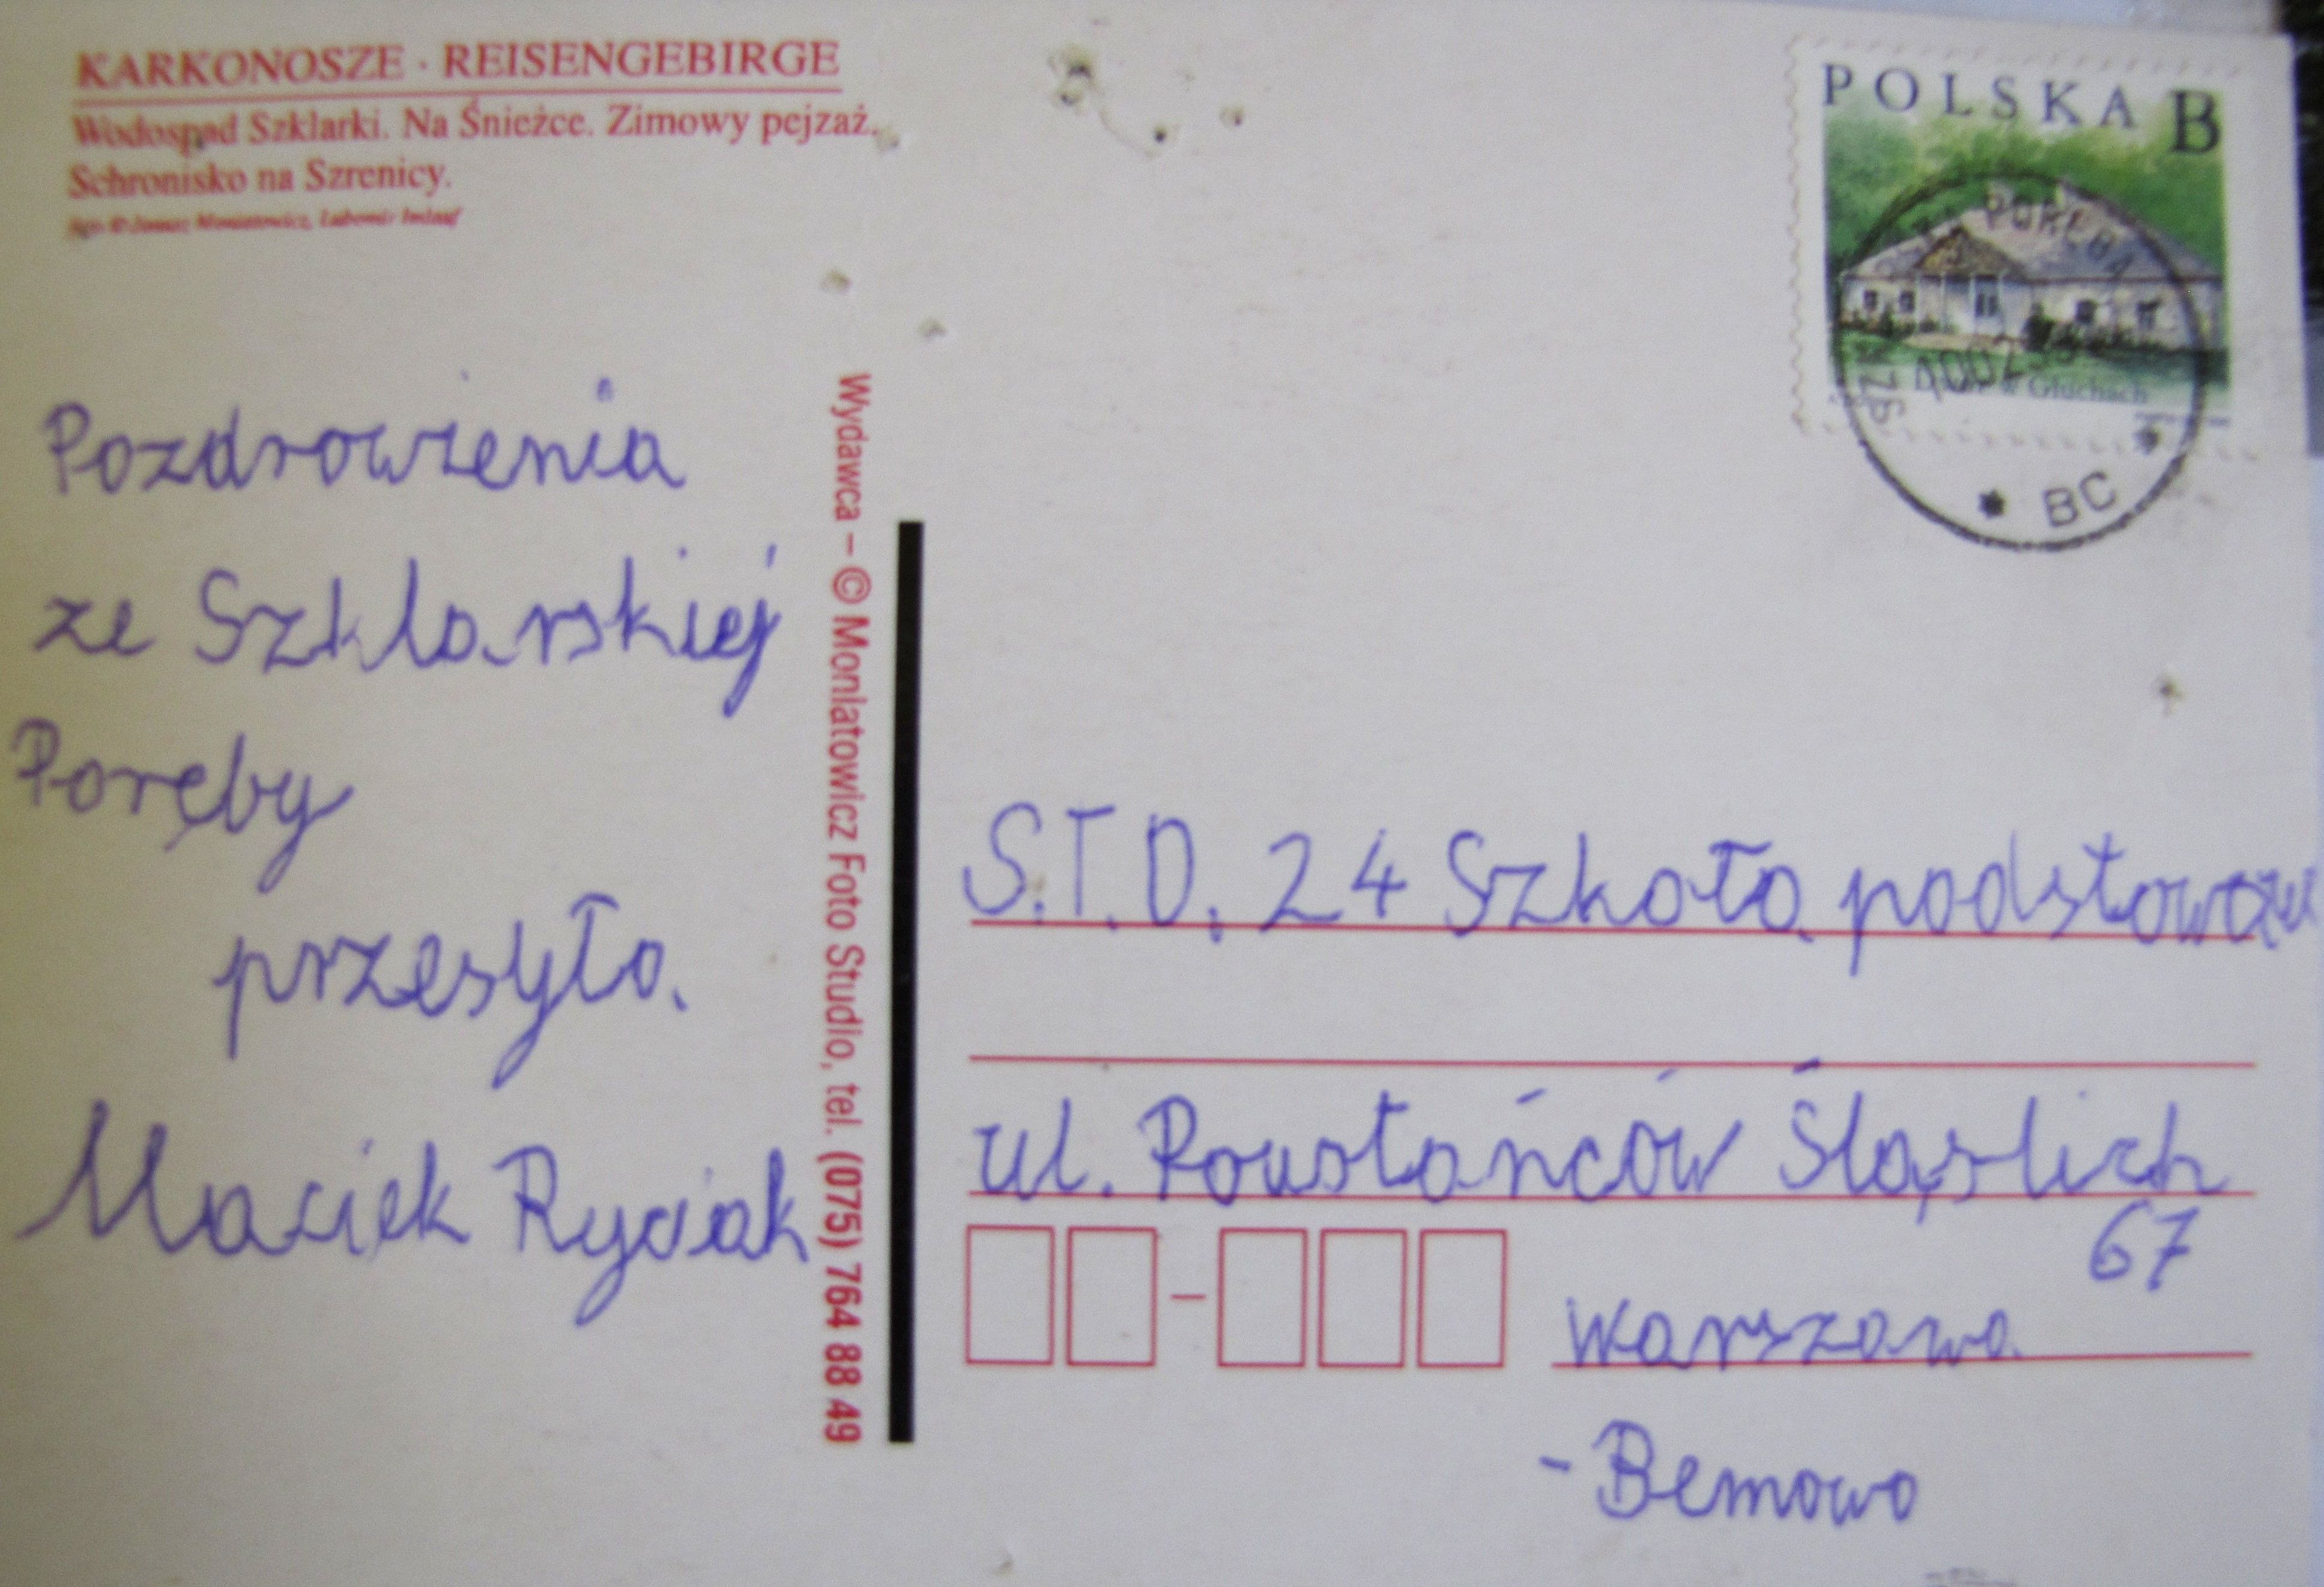 KARKONOSZE · REISENGEBIRGE
Wodospad Szklarki. Na Śnieżce. Zimowy pejzaż.
Schronisko na Szrenicy.
Janusz Moniatowicz, Lubomir Imlauf
Pozdrowienia
ze Szklarskiej
Poręby
przesyła
Maciek Ryciak
Wydawca – © Moniatowicz Foto Studio, tel. (075) 764 88 49
POLSKA B
PORĘBA
w Głuchach
BC
S.T.D. 24 Szkoła podstawow
ul. Powstańców Śląslich
67
Warszawa
- Bemowo